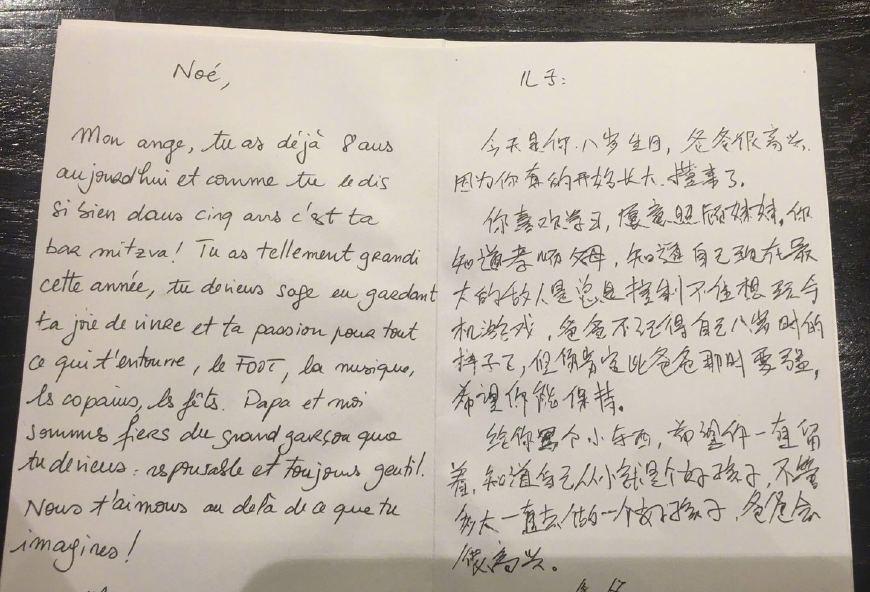 Noé,
Mon ange, tu as déjà 8 ans
aujourd'hui et comme tu le dis
si bien dans cinq ans c'est ta
bar mitzva! Tu as tellement grandi
cette année, tu deviens sage en gardant
ta joie de vivre et ta passion pour tout
ce qui t'entourre, le FOOT, la musique,
les copains, les fêts. Papa et moi
sommes fiers du grand garçon que
tu deviens : responsable et toujours gentil.
Nous t'aimons au delà de ce que tu
imagines!
儿子:
今天是你八岁生日,爸爸很高兴.
因为你真的开始长大.懂事了.
你喜欢学习,愿意照顾妹妹,你
知道孝顺父母,知道自己现在最
大的敌人是总是控制不住想玩手
机游戏,爸爸不记得自己八岁时的
样子了,但你肯定比爸爸那时要强,
希望你能保持。
给你写个小东西,希望你一直留
着,知道自己从小就是个好孩子,不管
多大一直去做一个好孩子,爸爸会
很高兴。